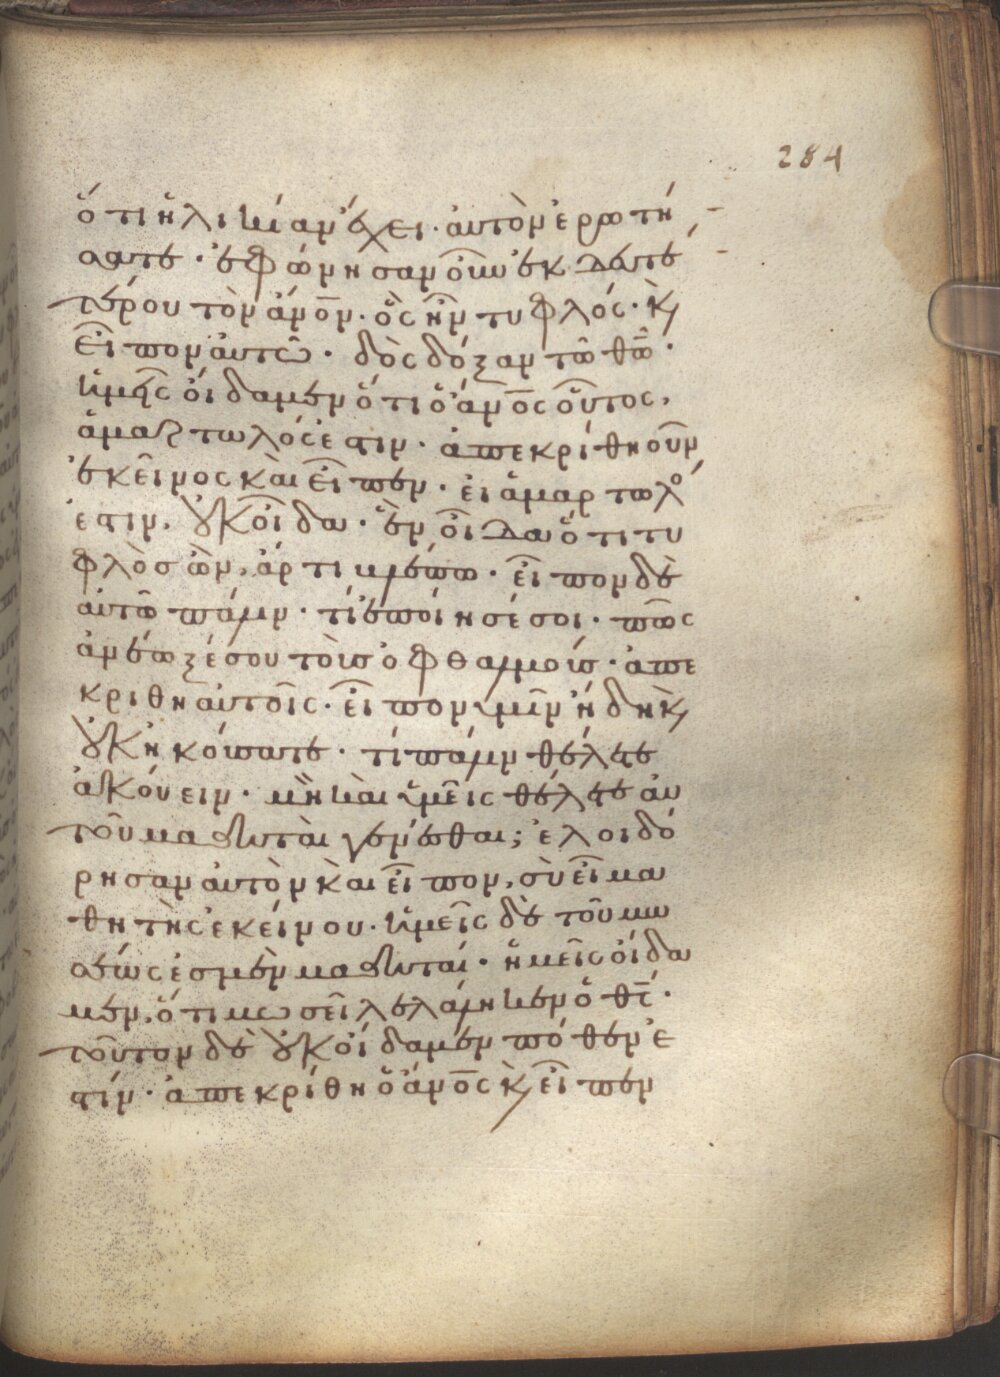 284
ὅτι ἡλικίαν ἔχει· αὐτὸν ἐρωτή
σατε· ἐφώνησαν οὖν ἐκ δευτέ
ρου τὸν ἀνον· ὃς ἦν τυφλός· κ
εἶπον αὐτῶ· δὸς δόξαν τῶ θῶ·
ἡμεῖς οἴδαμεν ὅτι ὁ ἀνος οὗτος,
ἁμαρτωλός ἐστιν· ἀπεκρίθη οὖν
ἐκεῖνος καὶ εἶπεν· εἰ ἁμαρτωλό
ἐστιν, οὐκ οἶδα· ἓν οἶδα ὅτι τυ
φλὸς ὢν, ἄρτι βλέπω· εἶπον δὲ
αὐτῶ πάλιν· τί ἐποίησέ σοι· πῶς
ἀνέωξέ σου τοὺς ὀφθαλμούς· ἀπε
κρίθη αὐτοῖς· εἶπον ὑμῖν ἤδη κ
οὐκ ἠκούσατε· τί πάλιν θέλετε
ἀκούειν· μὴ καὶ ὑμεῖς θέλετε αὐ
τοῦ μαθηταὶ γενέσθαι; ἐλοιδό
ρησαν αὐτὸν καὶ εἶπον, σὺ εἶ μα
θητὴς ἐκείνου· ἡμεῖς δὲ τοῦ μω
σέως ἐσμὲν μαθηταί· ἡμεῖς οἴδα
μεν, ὅτι μωσεῖ λελάληκεν ὁ θς·
τοῦτον δὲ οὐκ οἴδαμεν πόθεν ἐ
στίν· ἀπεκρίθη ὁ ἀνος κ εἶπεν